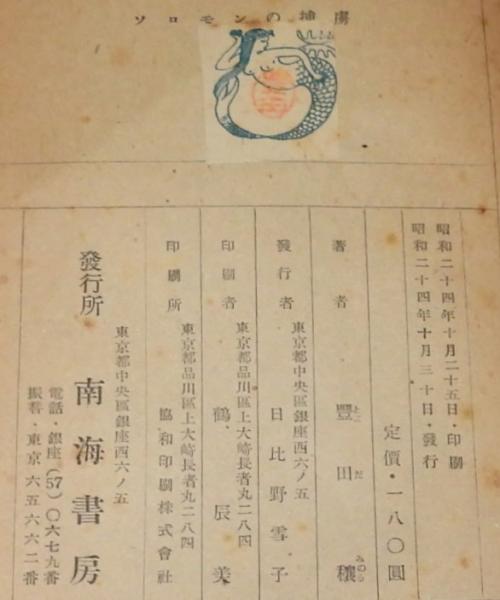 虜捕のンモロソ
昭和二十四年十月二十五日・印刷
昭和二十四年十月三十日・發行
定價・一八〇圓
著者 豐田穰
とよ だ みのる
東京都中央區銀座西六ノ五
發行者 日比野雪子
東京都品川區上大崎長者丸二八四
印刷者 鶴辰美
東京都品川區上大崎長者丸二八四
印刷所 協和印刷株式會社
東京都中央區銀座西六ノ五
發行所 南海書房
電話・銀座(57)〇六七九番
振替・東京六五六六二番